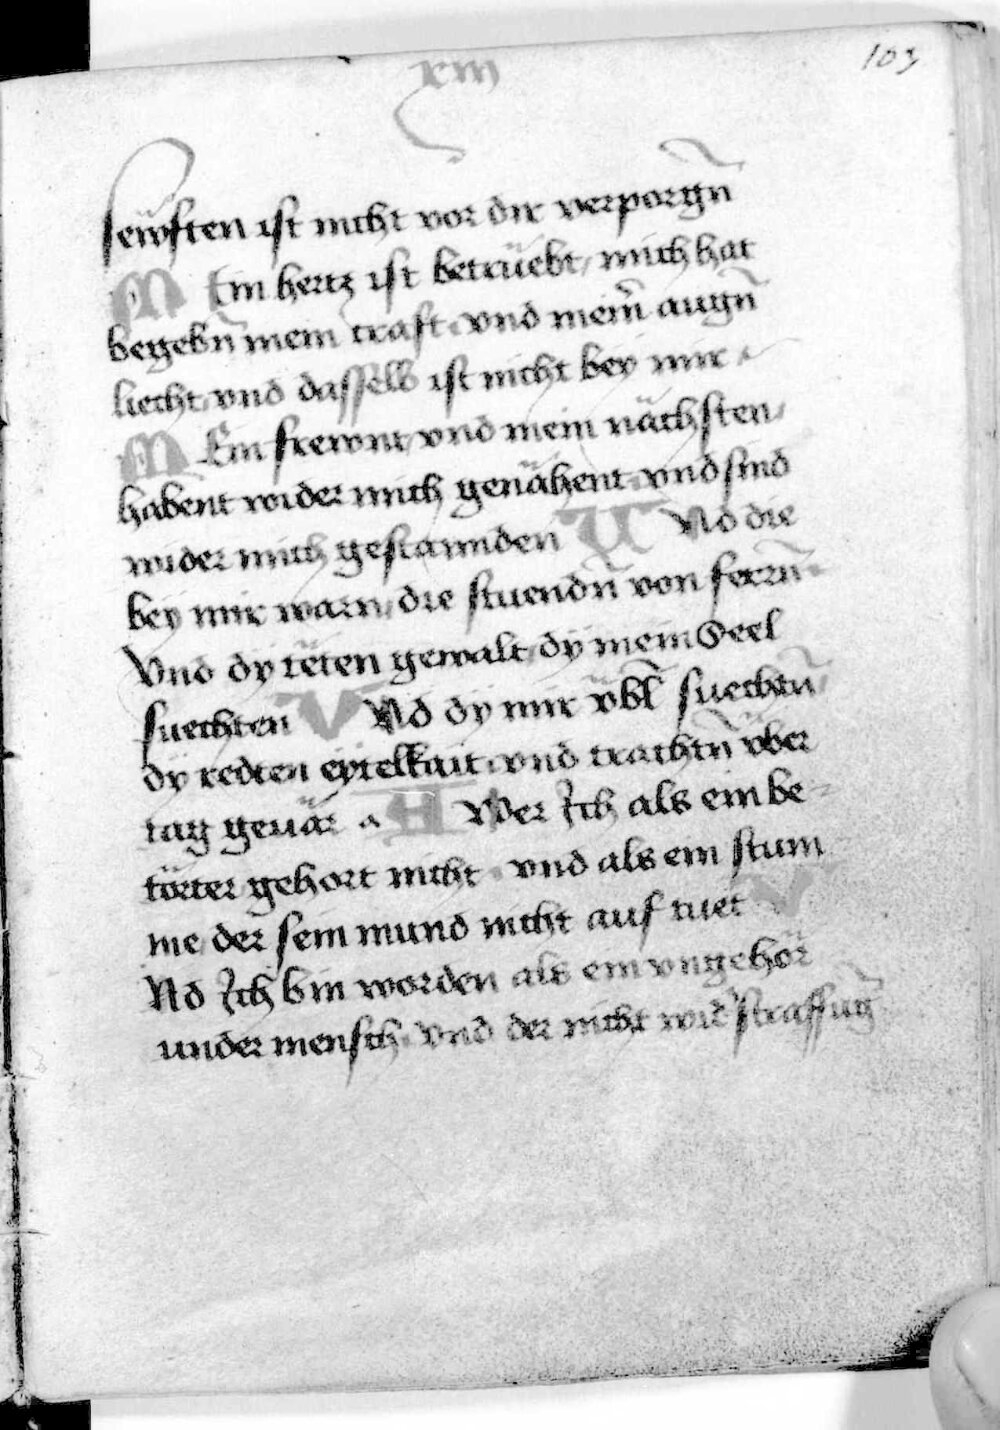 103
xiii
sewften ist nicht vor dir verporgn̄
MEin hertz ist betrüebt / mich hat
begebn̄ mein craft vnd mein̄ augn̄
liecht / vnd dasselb ist nicht bey mir
MEin frewnt / vnd mein nächsten /
habent wider mich genähent vnd sind
wider mich gestannden VNd die
bey mir warn / die stuendn̄ von ferrn̄
Vnd dÿ tëten gewalt / dÿ mein Seel
suechten VNd dÿ mir v̈bl̄ suechtn̄
dÿ redten eÿtelkait vnd trachtn̄ v̈ber
tag geuär A Wer Ich als ein be-
törter gehort nicht vnd als ein stum
me / der sein mund nicht auf tuet V
Nd Ich bin worden als ein vngehör
under mensch vnd der nicht wid̄ straffuḡ